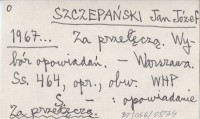 0
SZCZEPAŃSKI Jan Józef
1967... Za przełęczą. Wy-
bór opowiadań. – Warszawa.
Ss. 464, opr., obw. WHP
S – : opowiadanie
Za przełęczą.